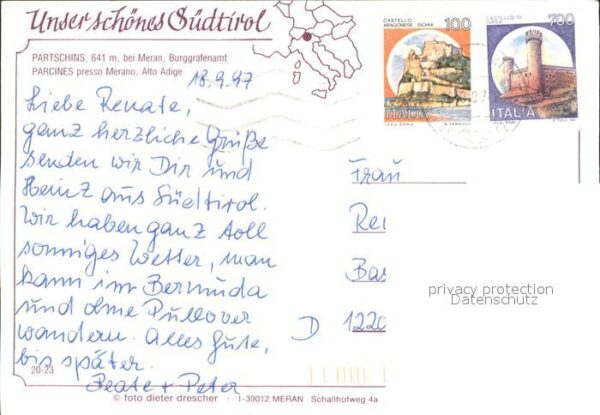 Unser schönes Südtirol
PARTSCHINS, 641 m, bei Meran, Burggrafenamt
PARCINES presso Merano, Alto Adige
18.9.97
Liebe Renate,
ganz herzliche Grüße
senden wir Dir und
Heinz aus Südtirol.
Wir haben ganz toll
sonniges Wetter, man
kann im Bermuda
und ohne Pullover
wandern. Alles Gute,
bis später.
Beate + Peter
20-23
© foto dieter drescher · I-39012 MERAN Schallhofweg 4a
CASTELLO
ARAGONESE ISCHIA
100
ITALIA
700
ITALIA
Frau
Rei
Bas
D 1220
privacy protection
Datenschutz